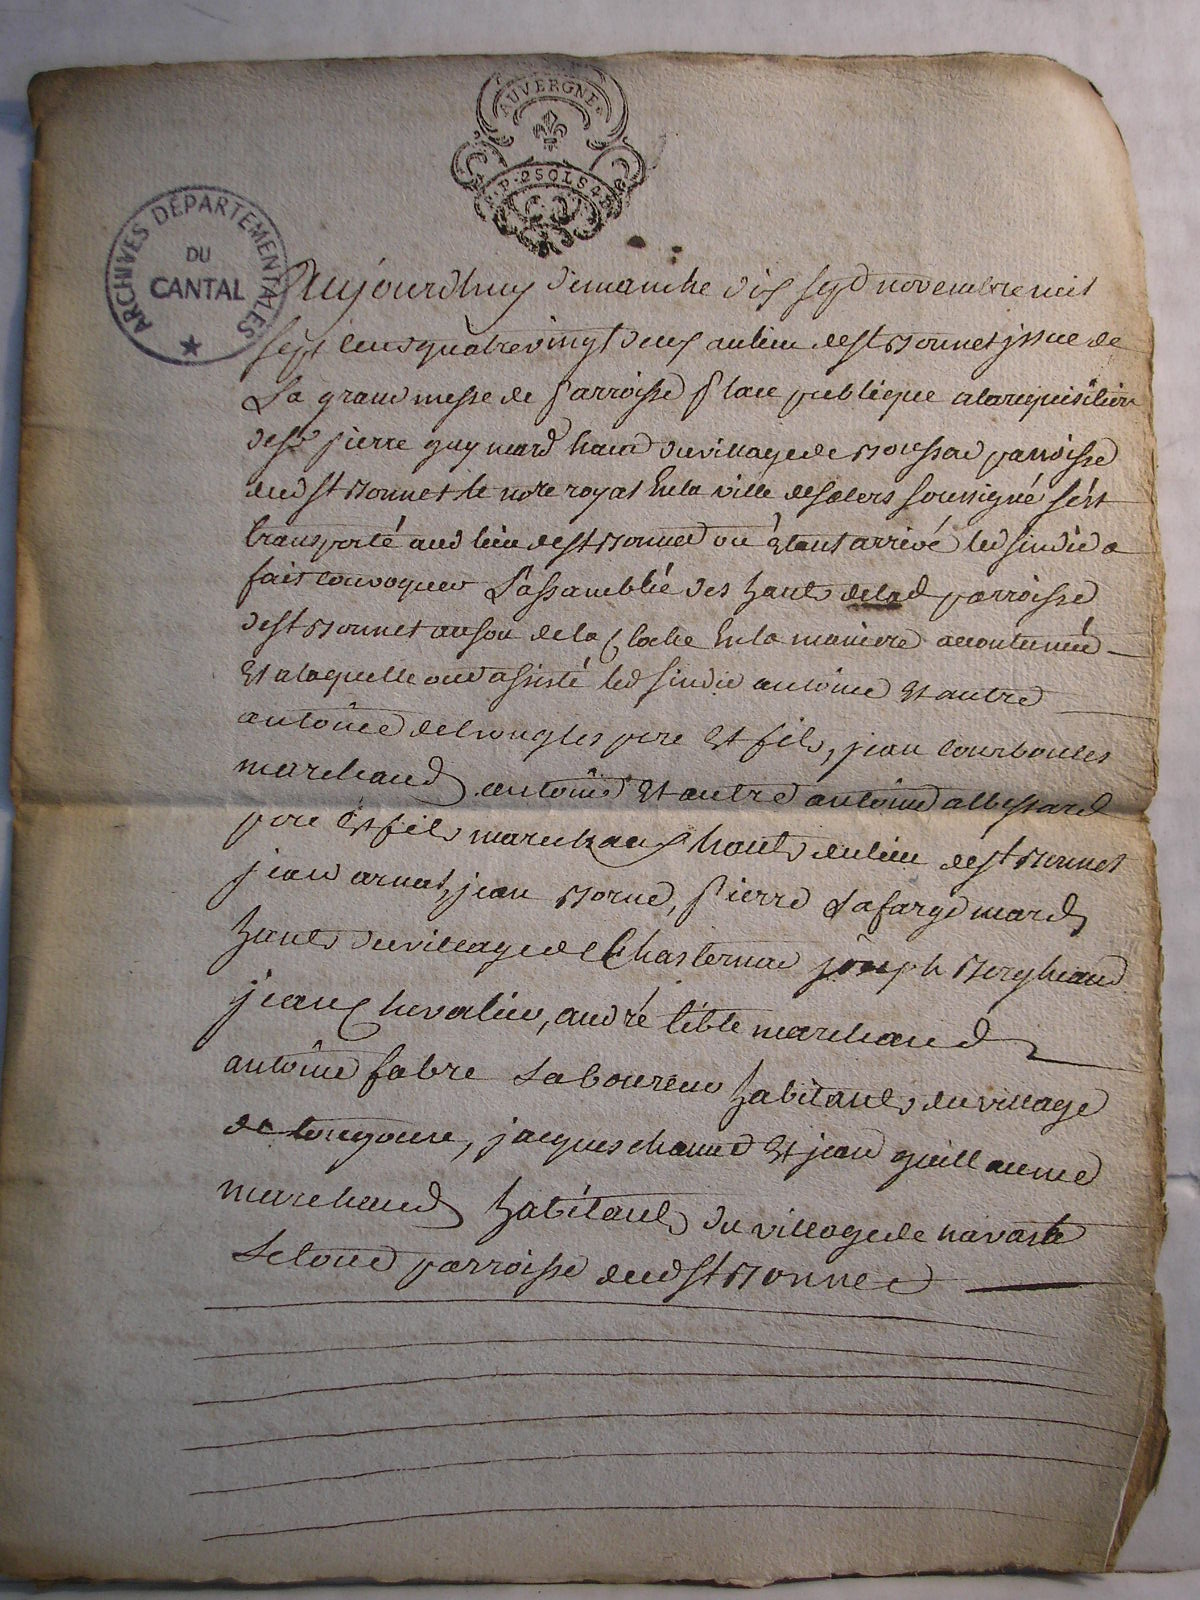 AUVERGNE
P. 2 SOLS 4
ARCHIVES DÉPARTEMENTALES
DU
CANTAL
aujourdhuy dimanche dix sept novembre mil
sept cens quatre vingt deux au lieu de st Bonnet jssue de
La grand messe de parroisse place publique a la requisition
de sr pierre guymard hant du village de Boussac parroisse
dud st Bonnet le nore royal En la ville de salers soussigné sést
transporté aud lieu de st Bonnet ou étant arrivé led sindic a
fait convoquer L'assamblée des hants de lad parroisse
de st Bonnet au son de la Cloche En la maniere accoutumée
Et a laquelle ont assisté led sindic antoine Et autre
antoine pere Et fils, jean Courboules
marchand antoine Et autre antoine albessard
pere Et fils marchaux hants du lieu de st Bonnet
jean arnal, jean Borne, pierre Lafarge march
hants du village de Chasternac joseph Bergheaud
jean Chevalier, andré marchand
antoine fabre Laboureur habitants du village
de, jacques chanut Et jean guillaume
marchands habitants du village de navaste
parroisse dud st Bonnet